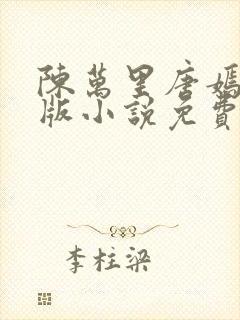 陳萬里唐嫣
版小說免費
李柱梁